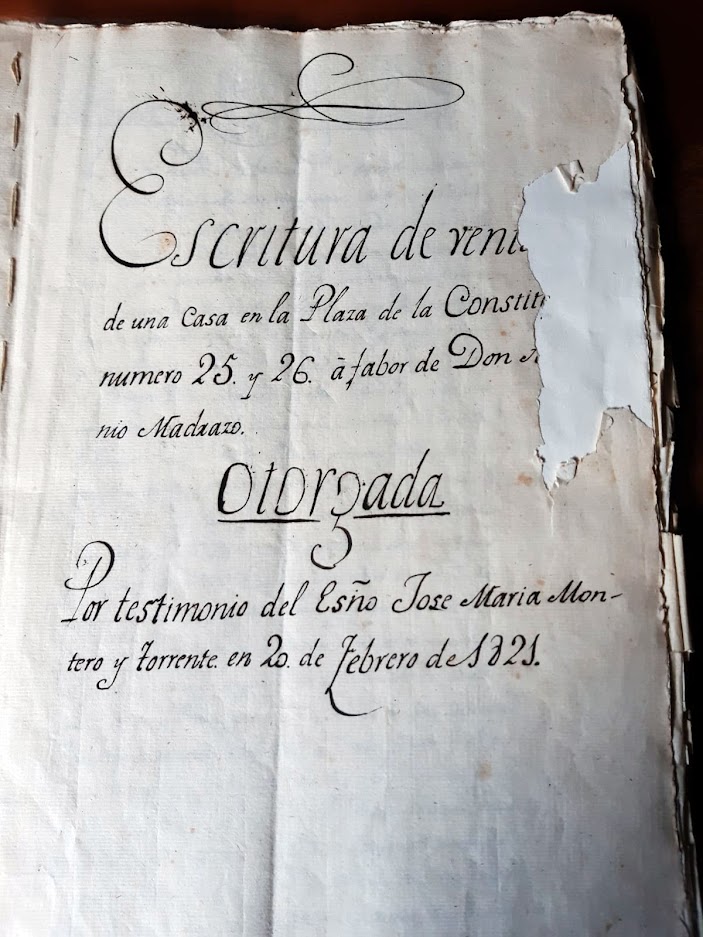 Escritura de vent
de una Casa en la Plaza de la Constitu
numero 25. y 26. à fabor de Don
nio Madrazo.
Otorgada
Por testimonio del Esño Jose Maria Mon-
tero y Torrente. en 20. de Febrero de 1821.